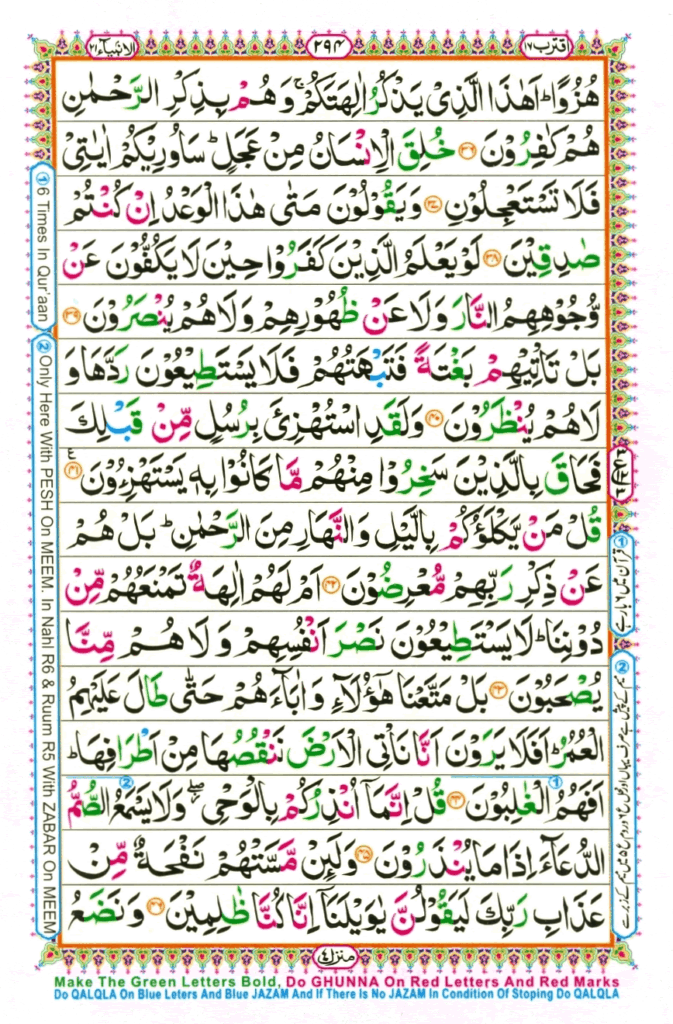 الانبیآء ۲۱
۲۹۴
اقترب ۱۷
هُزُوًا ؕ اَهٰذَا الَّذِیْ یَذْكُرُ اٰلِهَتَكُمْ ۚ وَ هُمْ بِذِكْرِ الرَّحْمٰنِ
هُمْ كٰفِرُوْنَ ﴿۳۶﴾ خُلِقَ الْاِنْسَانُ مِنْ عَجَلٍ ؕ سَاُورِیْكُمْ اٰیٰتِیْ
فَلَا تَسْتَعْجِلُوْنِ ﴿۳۷﴾ وَیَقُوْلُوْنَ مَتٰی هٰذَا الْوَعْدُ اِنْ كُنْتُمْ
صٰدِقِیْنَ ﴿۳۸﴾ لَوْ یَعْلَمُ الَّذِیْنَ كَفَرُوْا حِیْنَ لَا یَكُفُّوْنَ عَنْ
وُّجُوْهِهِمُ النَّارَ وَلَا عَنْ ظُهُوْرِهِمْ وَلَا هُمْ یُنْصَرُوْنَ ﴿۳۹﴾
بَلْ تَاْتِیْهِمْ بَغْتَةً فَتَبْهَتُهُمْ فَلَا یَسْتَطِیْعُوْنَ رَدَّهَا وَ
لَا هُمْ یُنْظَرُوْنَ ﴿۴۰﴾ وَلَقَدِ اسْتُهْزِئَ بِرُسُلٍ مِّنْ قَبْلِكَ
فَحَاقَ بِالَّذِیْنَ سَخِرُوْا مِنْهُمْ مَّا كَانُوْا بِهٖ یَسْتَهْزِءُوْنَ ﴿۴۱﴾ ع
قُلْ مَنْ یَّكْلَؤُكُمْ بِالَّیْلِ وَالنَّهَارِ مِنَ الرَّحْمٰنِ ؕ بَلْ هُمْ
عَنْ ذِكْرِ رَبِّهِمْ مُّعْرِضُوْنَ ﴿۴۲﴾ اَمْ لَهُمْ اٰلِهَةٌ تَمْنَعُهُمْ مِّنْ
دُوْنِنَا ؕ لَا یَسْتَطِیْعُوْنَ نَصْرَ اَنْفُسِهِمْ وَلَا هُمْ مِّنَّا
یُصْحَبُوْنَ ﴿۴۳﴾ بَلْ مَتَّعْنَا هٰۤؤُلَآءِ وَاٰبَآءَهُمْ حَتّٰی طَالَ عَلَیْهِمُ
الْعُمُرُ ؕ اَفَلَا یَرَوْنَ اَنَّا نَاْتِی الْاَرْضَ نَنْقُصُهَا مِنْ اَطْرَافِهَا ؕ
اَفَهُمُ الْغٰلِبُوْنَ ﴿۴۴﴾ قُلْ اِنَّمَاۤ اُنْذِرُكُمْ بِالْوَحْیِ ۖ وَلَا یَسْمَعُ الصُّمُّ
الدُّعَآءَ اِذَا مَا یُنْذَرُوْنَ ﴿۴۵﴾ وَلَئِنْ مَّسَّتْهُمْ نَفْحَةٌ مِّنْ
عَذَابِ رَبِّكَ لَیَقُوْلُنَّ یٰوَیْلَنَاۤ اِنَّا كُنَّا ظٰلِمِیْنَ ﴿۴۶﴾ وَنَضَعُ
① 6 Times In Qur'aan
② Only Here With PESH On MEEM. In Nahl R6 & Ruum R5 With ZABAR On MEEM
① قرآن میں ۶ بار ہے
منزل ۴
Make The Green Letters Bold, Do GHUNNA On Red Letters And Red Marks
Do QALQLA On Blue Leters And Blue JAZAM And If There Is No JAZAM In Condition Of Stoping Do QALQLA